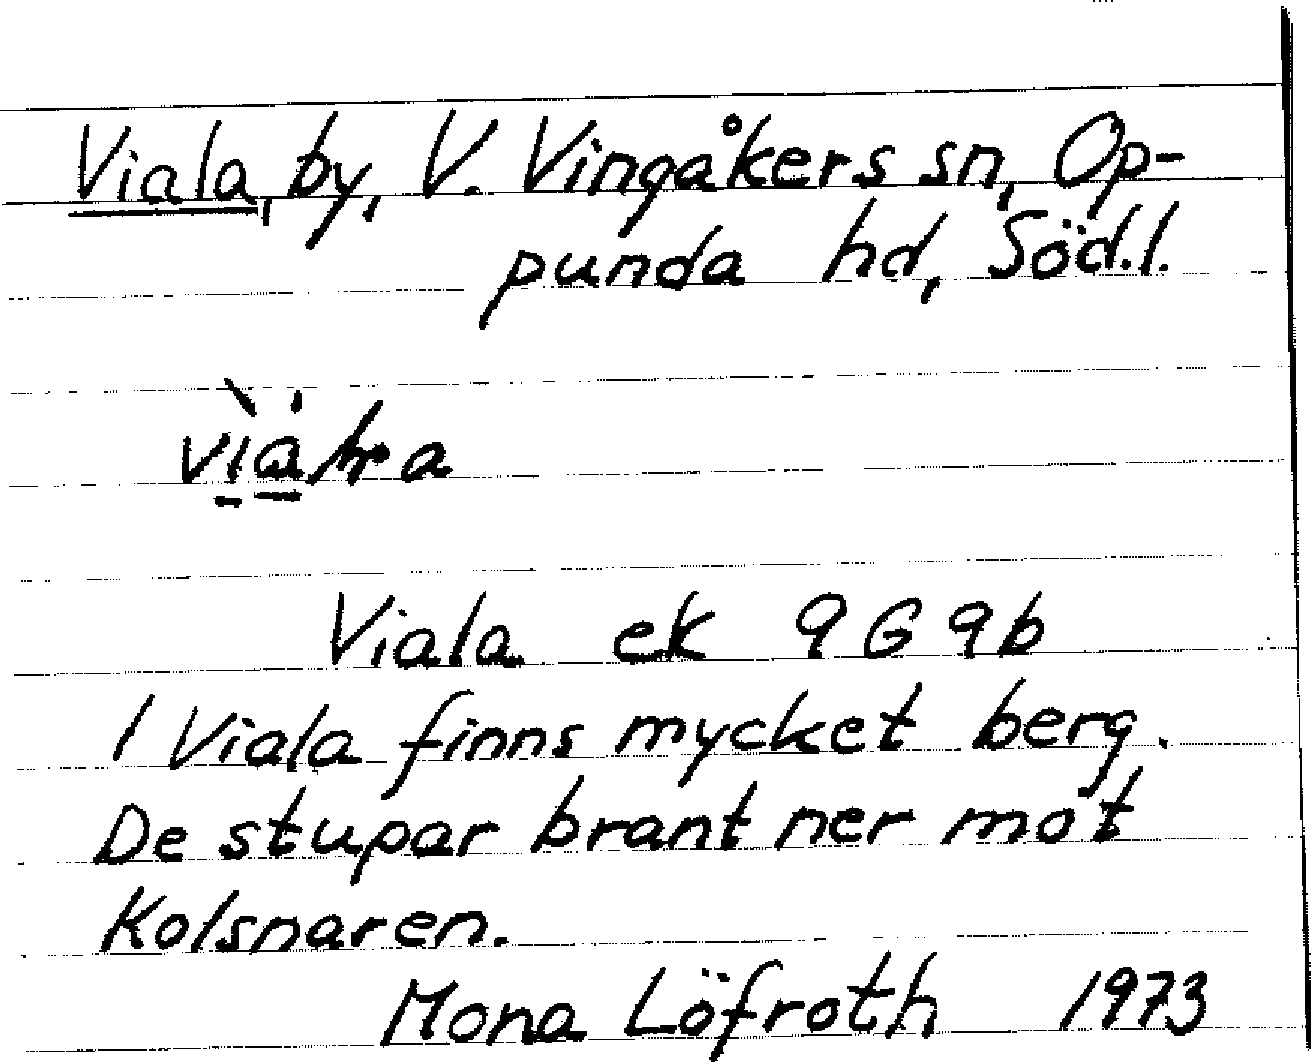 Viala, by, V. Vingåkers sn, Op-
punda hd, Söd.l.
Viala ek 9G9b
I Viala finns mycket berg.
De stupar brant ner mot
Kolsnaren.
Mona Löfroth 1973